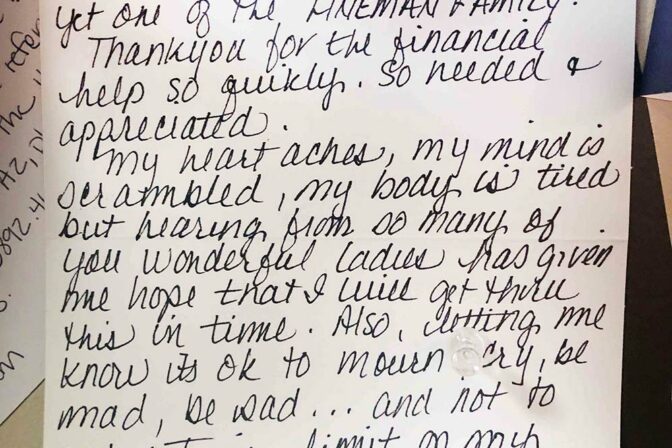 yet one of the LINEMAN FAMILY.
Thankyou for the financial
help so quickly. So needed &
appreciated.
my heart aches, my mind is
scrambled, my body is tired
but hearing from so many of
you wonderful ladies has given
me hope that I will get thru
this in time. Also, letting me
know its ok to mourn, cry, be
mad, be sad... and not to
limit on my
refer
the
AZ,
892.41
on